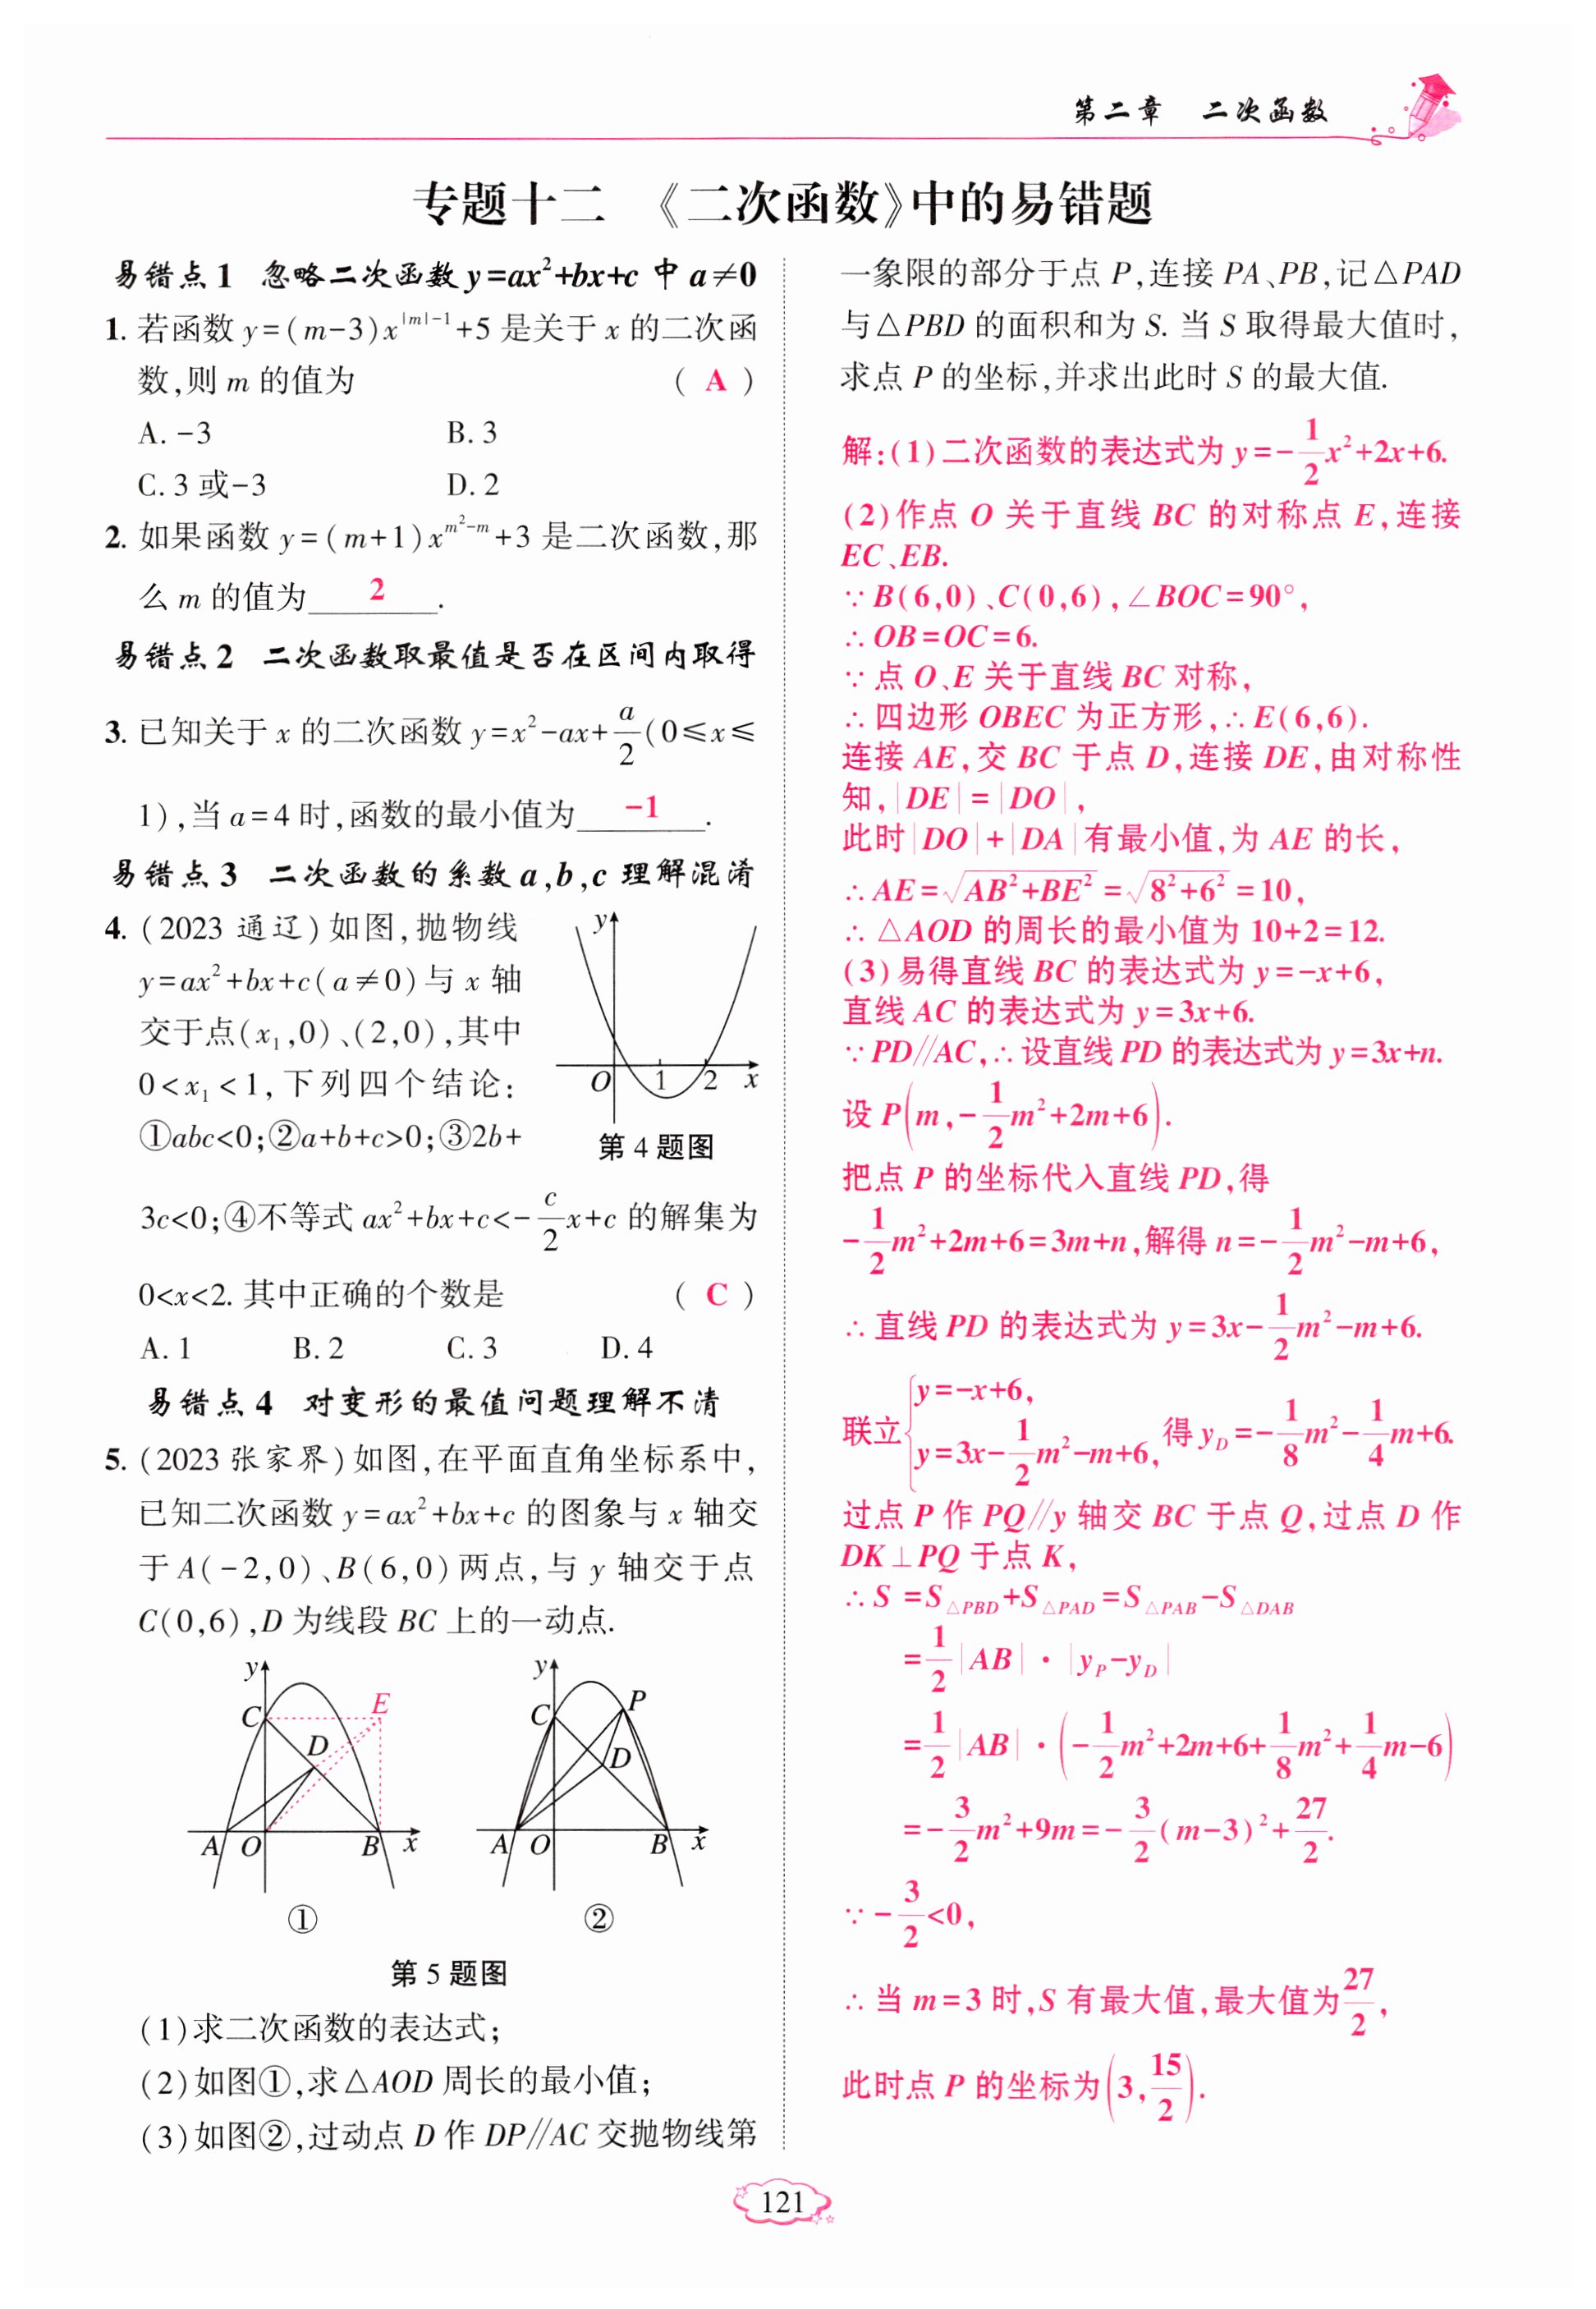 第二章 二次函数
专题十二 《二次函数》中的易错题
易错点1 忽略二次函数y=ax²+bx+c中a≠0
1. 若函数y=(m-3)x^{|m|-1}+5是关于x的二次函
数,则m的值为 ( A )
A. -3 B. 3
C. 3或-3 D. 2
2. 如果函数y=(m+1)x^{m²-m}+3是二次函数,那
么m的值为 2 .
易错点2 二次函数取最值是否在区间内取得
3. 已知关于x的二次函数y=x²-ax+a/2(0≤x≤
1),当a=4时,函数的最小值为 -1 .
易错点3 二次函数的系数a,b,c理解混淆
4. (2023通辽)如图,抛物线
y=ax²+bx+c(a≠0)与x轴
交于点(x₁,0)、(2,0),其中
0<x₁<1,下列四个结论:
①abc<0;②a+b+c>0;③2b+
y
O 1 2 x
第4题图
3c<0;④不等式ax²+bx+c<-c/2x+c的解集为
0<x<2. 其中正确的个数是 ( C )
A. 1 B. 2 C. 3 D. 4
易错点4 对变形的最值问题理解不清
5. (2023张家界)如图,在平面直角坐标系中,
已知二次函数y=ax²+bx+c的图象与x轴交
于A(-2,0)、B(6,0)两点,与y轴交于点
C(0,6),D为线段BC上的一动点.
y
C E
D
A O B x
①
y
C P
D
A O B x
②
第5题图
(1)求二次函数的表达式;
(2)如图①,求△AOD周长的最小值;
(3)如图②,过动点D作DP∥AC交抛物线第
一象限的部分于点P,连接PA、PB,记△PAD
与△PBD的面积和为S. 当S取得最大值时,
求点P的坐标,并求出此时S的最大值.
解:(1)二次函数的表达式为y=-1/2x²+2x+6.
(2)作点O关于直线BC的对称点E,连接
EC、EB.
∵B(6,0)、C(0,6),∠BOC=90°,
∴OB=OC=6.
∵点O、E关于直线BC对称,
∴四边形OBEC为正方形,∴E(6,6).
连接AE,交BC于点D,连接DE,由对称性
知,|DE|=|DO|,
此时|DO|+|DA|有最小值,为AE的长,
∴AE=√(AB²+BE²)=√(8²+6²)=10,
∴△AOD的周长的最小值为10+2=12.
(3)易得直线BC的表达式为y=-x+6,
直线AC的表达式为y=3x+6.
∵PD∥AC,∴设直线PD的表达式为y=3x+n.
设P(m,-1/2m²+2m+6).
把点P的坐标代入直线PD,得
-1/2m²+2m+6=3m+n,解得n=-1/2m²-m+6,
∴直线PD的表达式为y=3x-1/2m²-m+6.
联立{y=-x+6,
y=3x-1/2m²-m+6,得y_D=-1/8m²-1/4m+6.
过点P作PQ∥y轴交BC于点Q,过点D作
DK⊥PQ于点K,
∴S=S△PBD+S△PAD=S△PAB-S△DAB
=1/2|AB|·|y_P-y_D|
=1/2|AB|·(-1/2m²+2m+6+1/8m²+1/4m-6)
=-3/2m²+9m=-3/2(m-3)²+27/2.
∵-3/2<0,
∴当m=3时,S有最大值,最大值为27/2,
此时点P的坐标为(3,15/2).
121